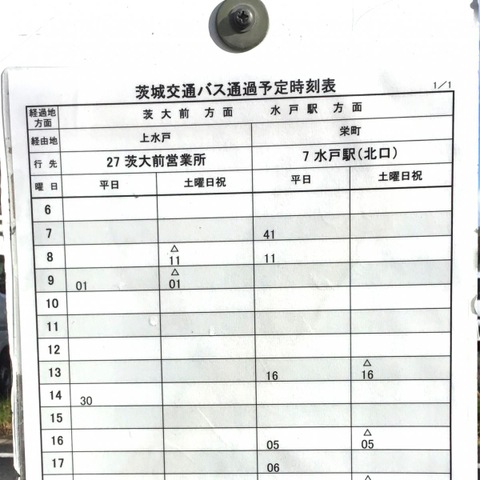 茨城交通バス通過予定時刻表 1/1
経過地方面 茨大前 方面 水戸駅 方面
経由地 上水戸 栄町
行先 27 茨大前営業所 7 水戸駅(北口)
曜日 平日 土曜日祝 平日 土曜日祝
6
7 41
8 △ 11 11
9 01 △ 01
10
11
12
13 16 △ 16
14 30
15
16 05 △ 05
17 06
△